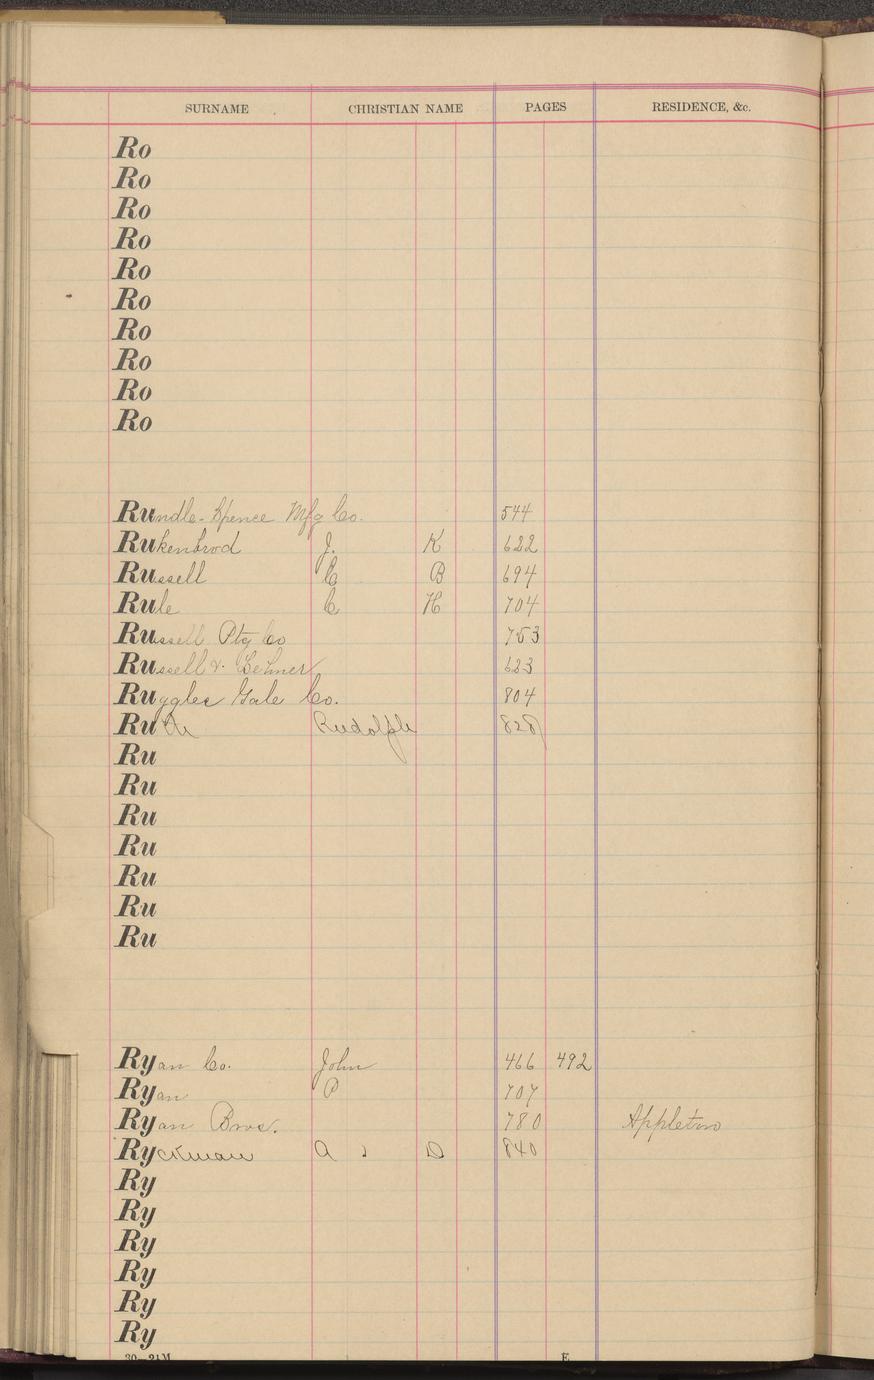 SURNAME CHRISTIAN NAME PAGES RESIDENCE, &c.
Ro
Ro
Ro
Ro
Ro
Ro
Ro
Ro
Ro
Ro
Rundle-Spence Mfg Co. 544
Rukenbrod J. K 622
Russell C B 694
Rule C H 704
Russell Ptg Co 753
Russell & Lehner 623
Ruggles Gale Co. 804
Ruth Rudolph 828
Ru
Ru
Ru
Ru
Ru
Ru
Ru
Ryan Co. John 466 492
Ryan P 707
Ryan Bros. 780 Appleton
Ryckman A D 840
Ry
Ry
Ry
Ry
Ry
Ry
30—21M E